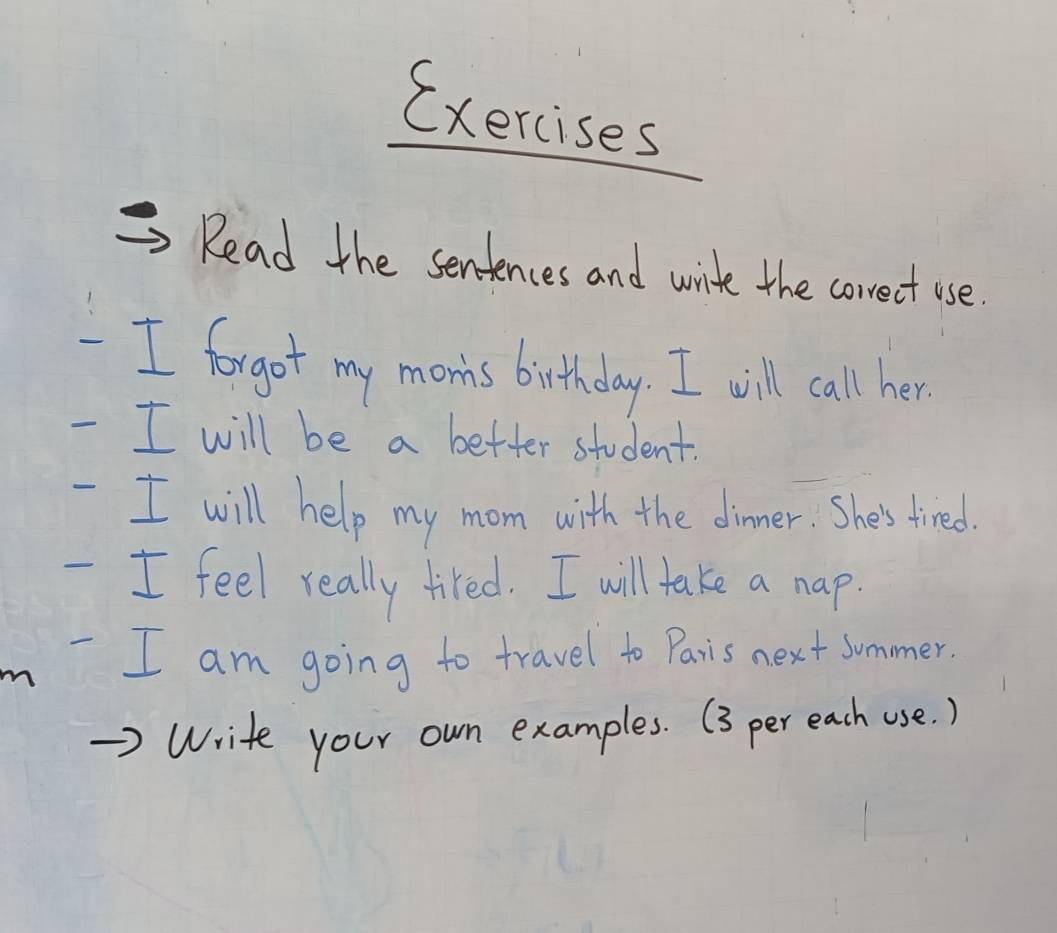 Exercises
→ Read the sentences and write the correct use.
- I forgot my mom's birthday. I will call her.
- I will be a better student.
- I will help my mom with the dinner. She's tired.
- I feel really tired. I will take a nap.
- I am going to travel to Paris next summer.
m
→ Write your own examples. (3 per each use.)